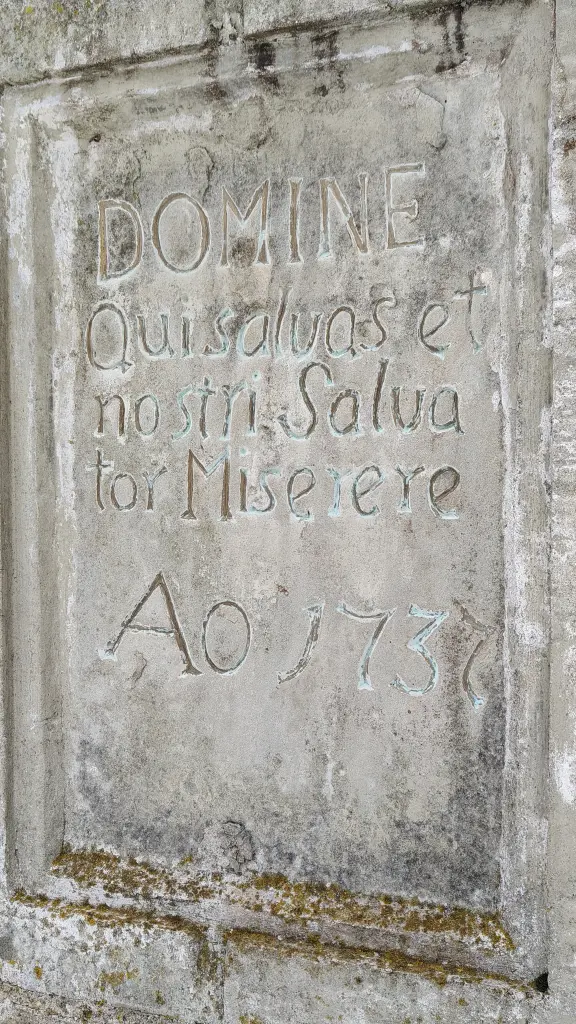 DOMINE
Qui salvas et
nostri Salva
tor Miserere
Ao 1737